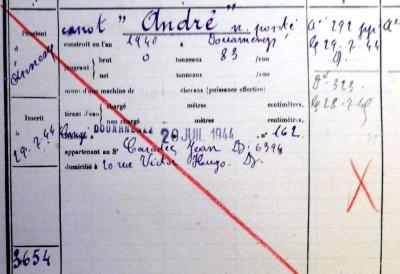 Provient
d
canot "André" n. ponté
construit en l'an 1940 à Douarnenez
jaugeant { brut 0 tonneaux 83 /100
net tonneaux /100
muni d'une machine de chevaux (puissance effective)
tirant d'eau { chargé mètres centimètres,
non chargé mètres centimètres,
DOUARNENEZ 20 JUIL 1944 n° 162
appartenant au Sr Jean Dz 6394
domicilié à 20 rue Victor Hugo Dz
Inscrit
le
29.7.44
3654
29-7-44
Dt 323
28-2-45